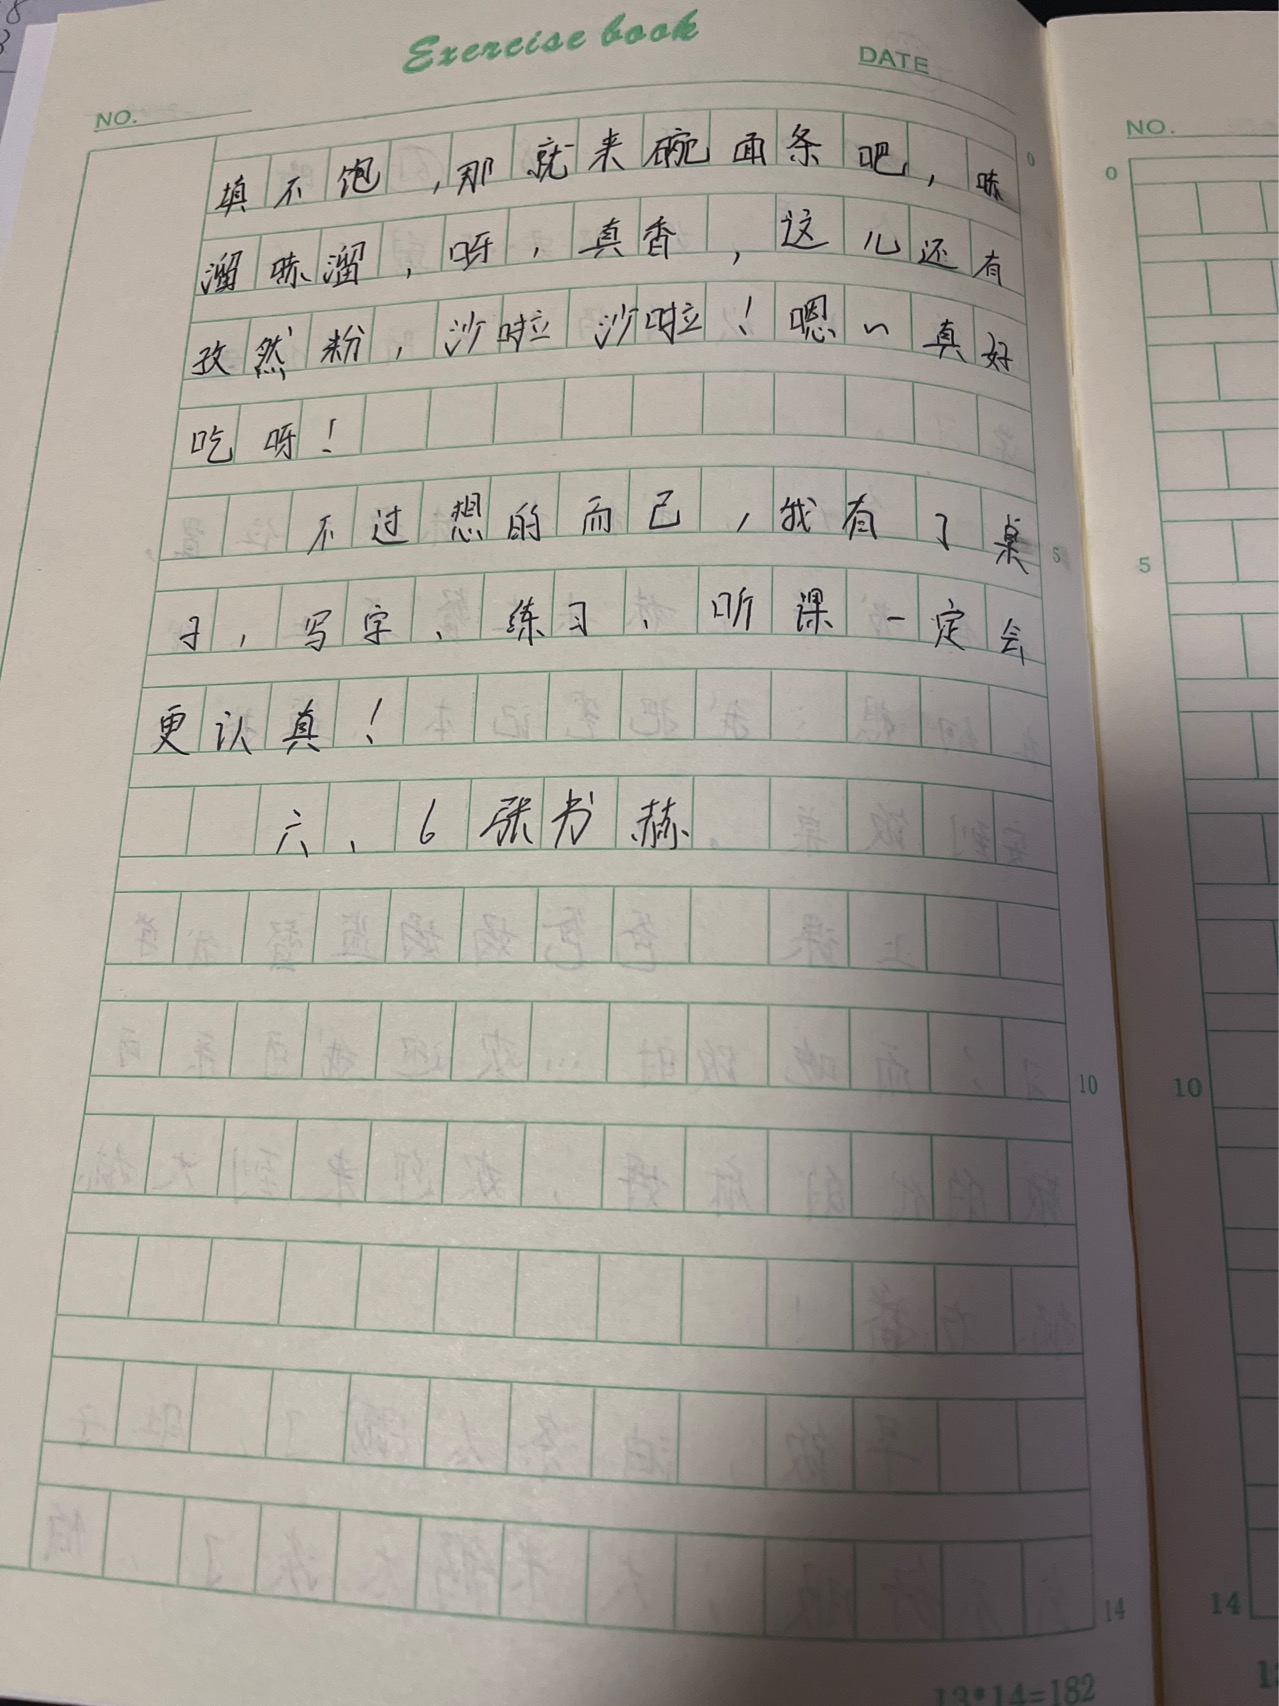 Exercise book
DATE
NO.
填不饱,那就来碗面条吧,哧
溜哧溜,呀,真香,这儿还有
孜然粉,沙啦沙啦!嗯~真好
吃呀!
不过想的而已,我有了桌
子,写字、练习、听课一定会
更认真!
六、6张书赫
0
5
10
14
13*14=182
NO.
0
5
10
14